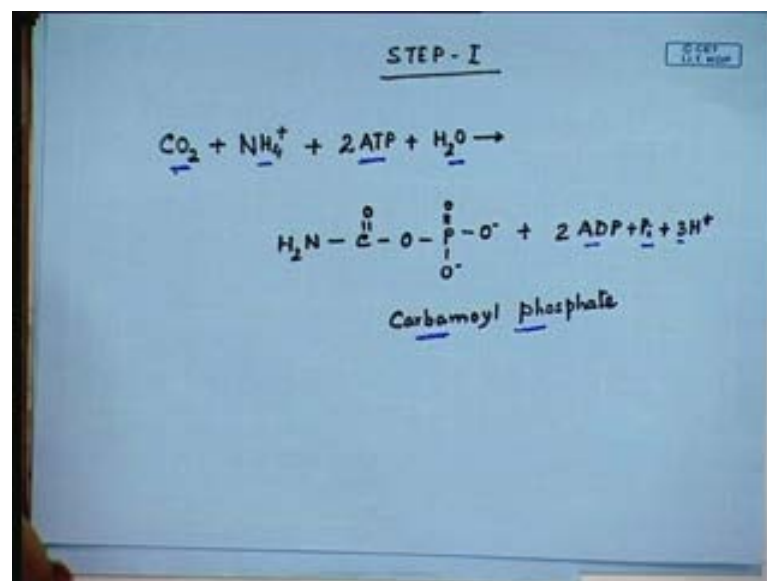 STEP-I
© CET
I.I.T. KGP
CO₂ + NH₄⁺ + 2 ATP + H₂O →
O O
|| ||
H₂N - C - O - P - O⁻ + 2 ADP + Pᵢ + 3H⁺
|
O⁻
Carbamoyl phosphate